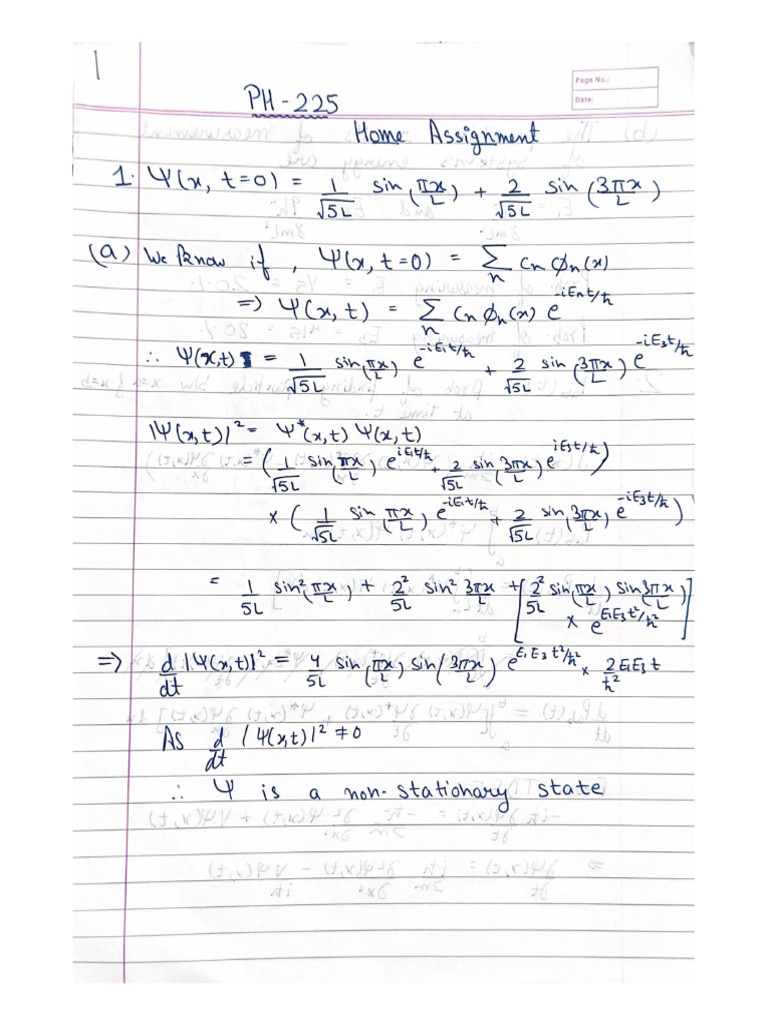 1
Page No.:
Date:
PH-225
Home Assignment
1. Ψ(x, t=0) = 1/√5L sin(πx/L) + 2/√5L sin(3πx/L)
(a) We know if, Ψ(x, t=0) = Σn cn φn(x)
=> Ψ(x, t) = Σn cn φn(x) e^-iEnt/ħ
∴ Ψ(x,t) = 1/√5L sin(πx/L) e^-iE1t/ħ + 2/√5L sin(3πx/L) e^-iE3t/ħ
|Ψ(x,t)|² = Ψ*(x,t) Ψ(x,t)
= (1/√5L sin(πx/L) e^iE1t/ħ + 2/√5L sin(3πx/L) e^iE3t/ħ)
× (1/√5L sin(πx/L) e^-iE1t/ħ + 2/√5L sin(3πx/L) e^-iE3t/ħ)
= 1/5L sin²(πx/L) + 2²/5L sin² 3πx/L + [2²/5L sin(πx/L) sin(3πx/L)
× e^E1E3t²/ħ²]
=> d/dt |Ψ(x,t)|² = 4/5L sin(πx/L) sin(3πx/L) e^E1E3t²/ħ² × 2E1E3t/ħ²
As d/dt |Ψ(x,t)|² ≠ 0
∴ Ψ is a non-stationary state